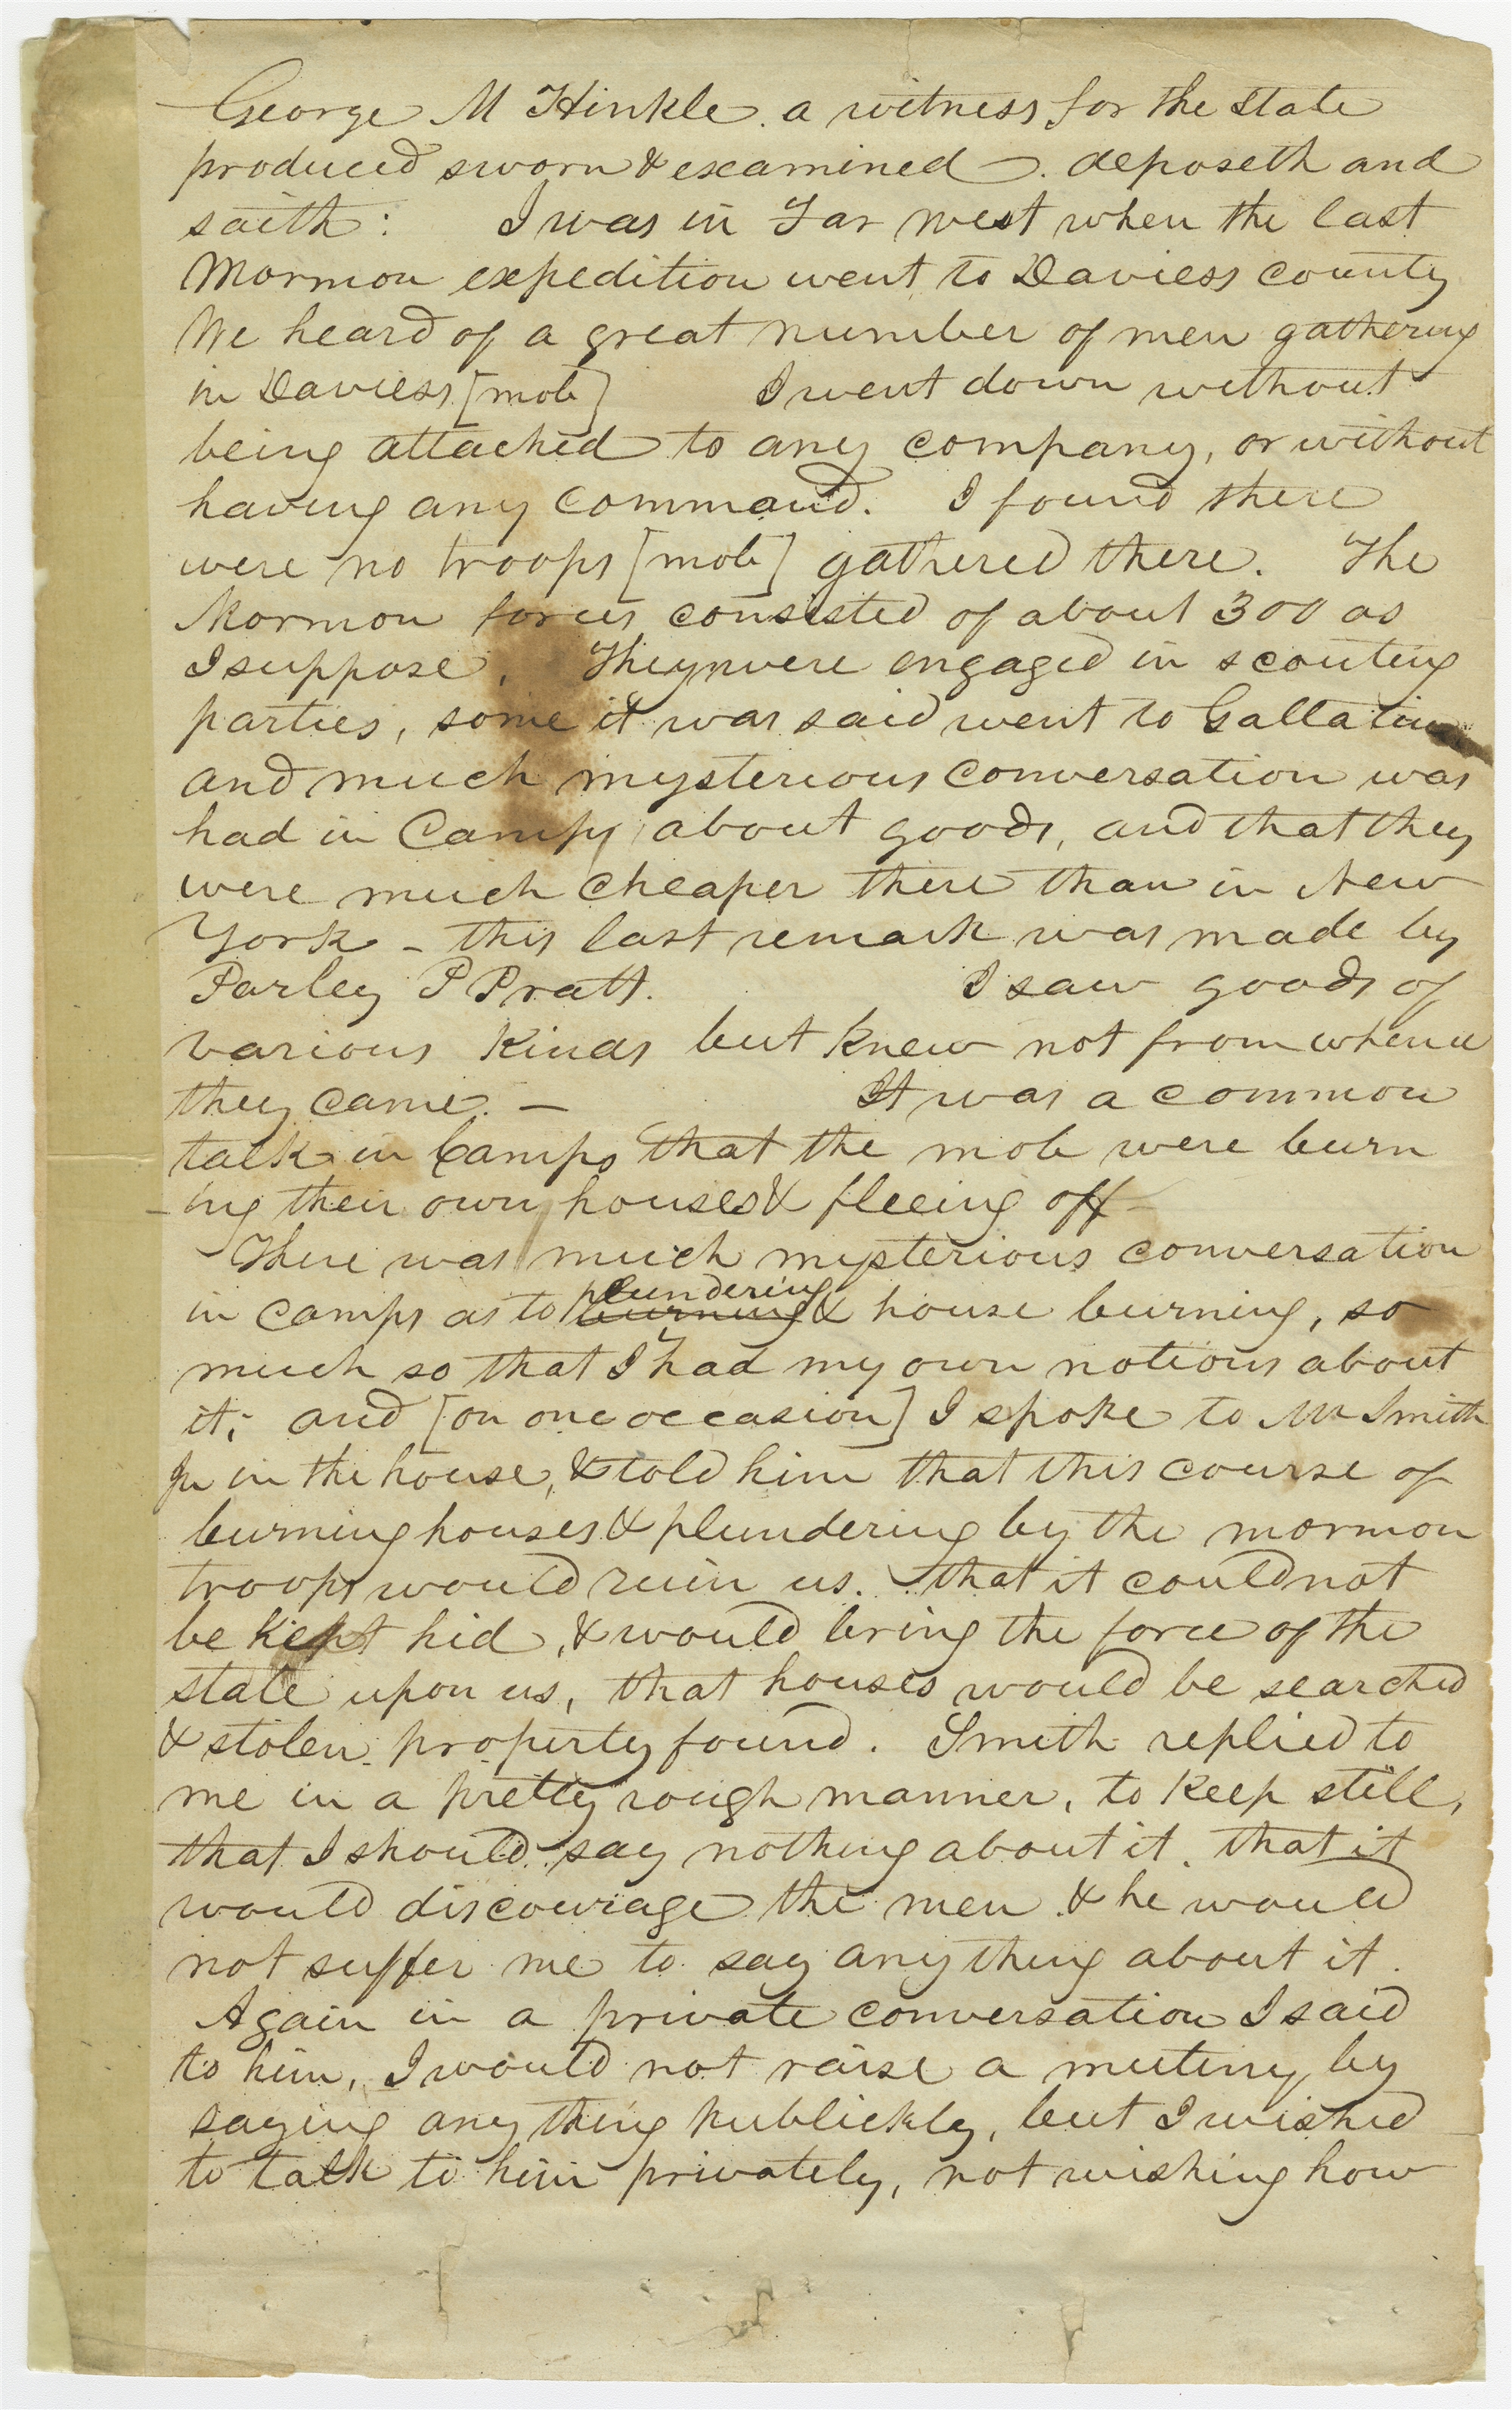 George M Hinkle. a witness for the State
produced sworn & examined. deposeth and
saith: I was in Far West when the last
Mormon expedition went to Daviess county
We heard of a great number of men gathering
in Daviess [mob] I went down without
being attached to any company, or without
having any command. I found there
were no troops [mob] gathered there. The
Mormon forces consisted of about 300 as
I suppose. They were engaged in scouting
parties, some it was said went to Gallatin
and much mysterious conversation was
had in Camps about goods, and that they
were much cheaper there than in New
York – this last remark was made by
Parley P Pratt. I saw goods of
various kinds but knew not from whence
they came. – It was a common
talk in Camps that the mob were burn
-ing their own houses & fleeing off –
There was much mysterious conversation
in camps as to burning plundering & house burning, so
much so that I had my own notions about
it; and [on one occasion] I spoke to Mr Smith
Jr in the house, & told him that this course of
burning houses & plundering by the mormon
troops would ruin us. that it could not
be kept hid, & would bring the force of the
state upon us, that houses would be searched
& stolen property found. Smith replied to
me in a pretty rough manner, to keep still,
that I should say nothing about it. that it
would discourage the men & he would
not suffer me to say any thing about it.
Again in a private conversation I said
to him, I would not raise a mutiny by
saying any thing publickly, but I wished
to talk to him privately, not wishing how